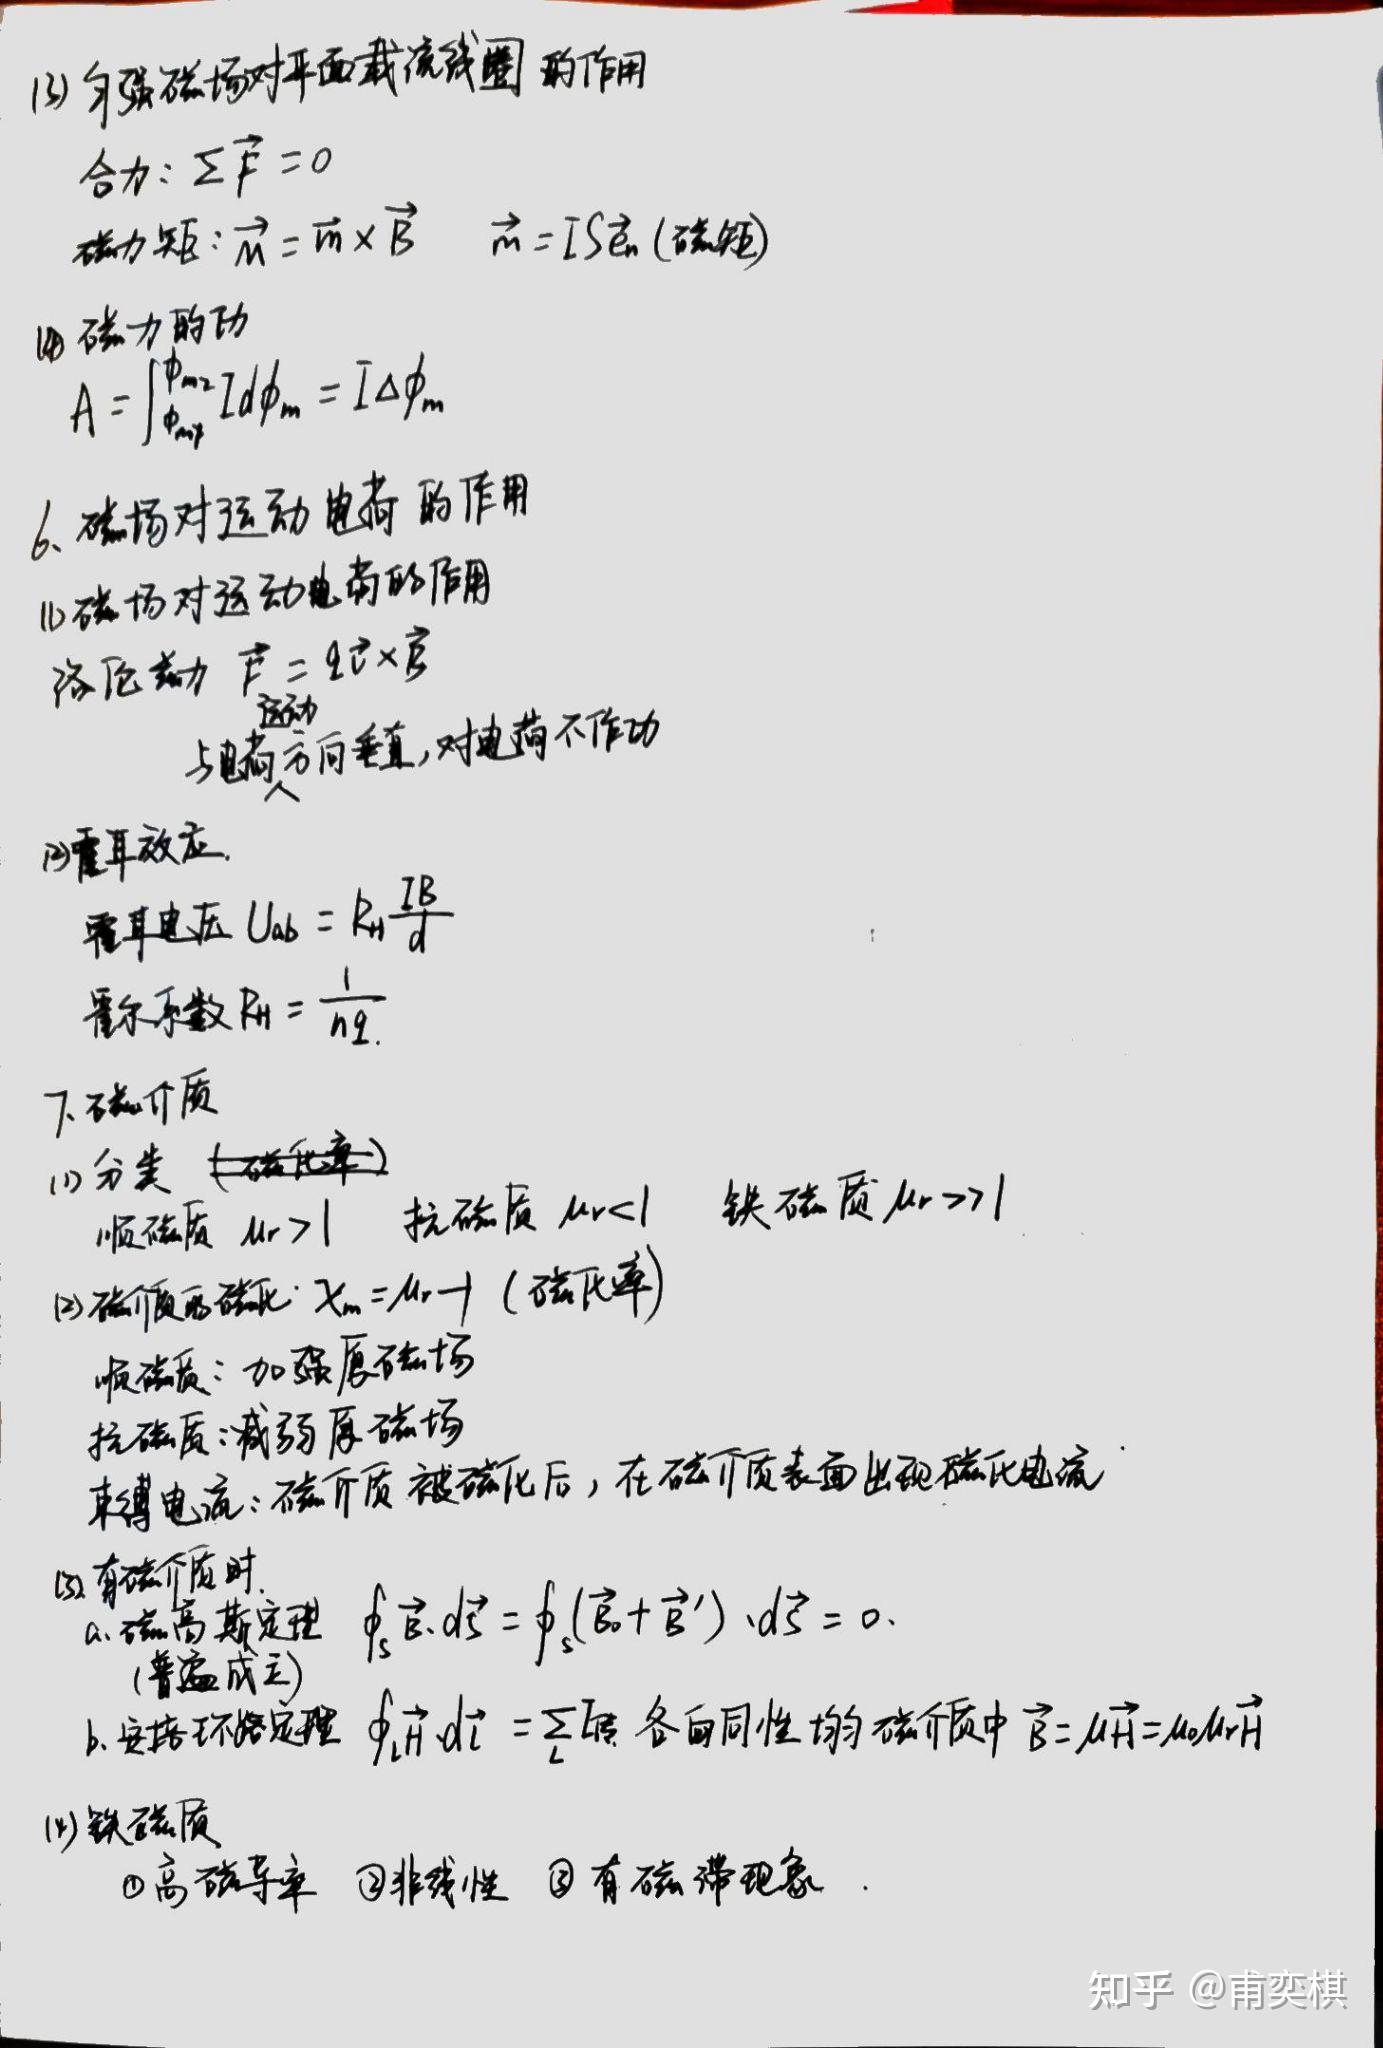 (3) 匀强磁场对平面载流线圈的作用
合力: ΣF⃗ = 0
磁力矩: M⃗ = m⃗ × B⃗  m⃗ = ISe⃗n (磁矩)
(4) 磁力的功
A = ∫_{Φm1}^{Φm2} Idϕm = IΔϕm
6、磁场对运动电荷的作用
(1) 磁场对运动电荷的作用
洛伦兹力 F⃗ = qv⃗ × B⃗
与电荷运动方向垂直，对电荷不作功
(2) 霍耳效应.
霍耳电压 Uab = RH IB/d
霍尔系数 RH = 1/nq.
7、磁介质
(1) 分类 (磁化率)
顺磁质 μr>1 抗磁质 μr<1 铁磁质 μr>>1
(2) 磁介质的磁化. χm = μr-1 (磁化率)
顺磁质: 加强原磁场
抗磁质: 减弱原磁场
束缚电流: 磁介质被磁化后, 在磁介质表面出现磁化电流.
(3). 有磁介质时.
a. 磁高斯定理 ∮s B⃗·dS⃗ = ∮s (B⃗0 + B⃗')·dS⃗ = 0.
(普遍成立)
b. 安培环路定理 ∮L H⃗·dl⃗ = Σ_L I传 各向同性均匀磁介质中 B⃗ = μH⃗ = μ0μrH⃗
(4) 铁磁质
①高磁导率 ②非线性 ③有磁滞现象.
知乎 @甫奕棋